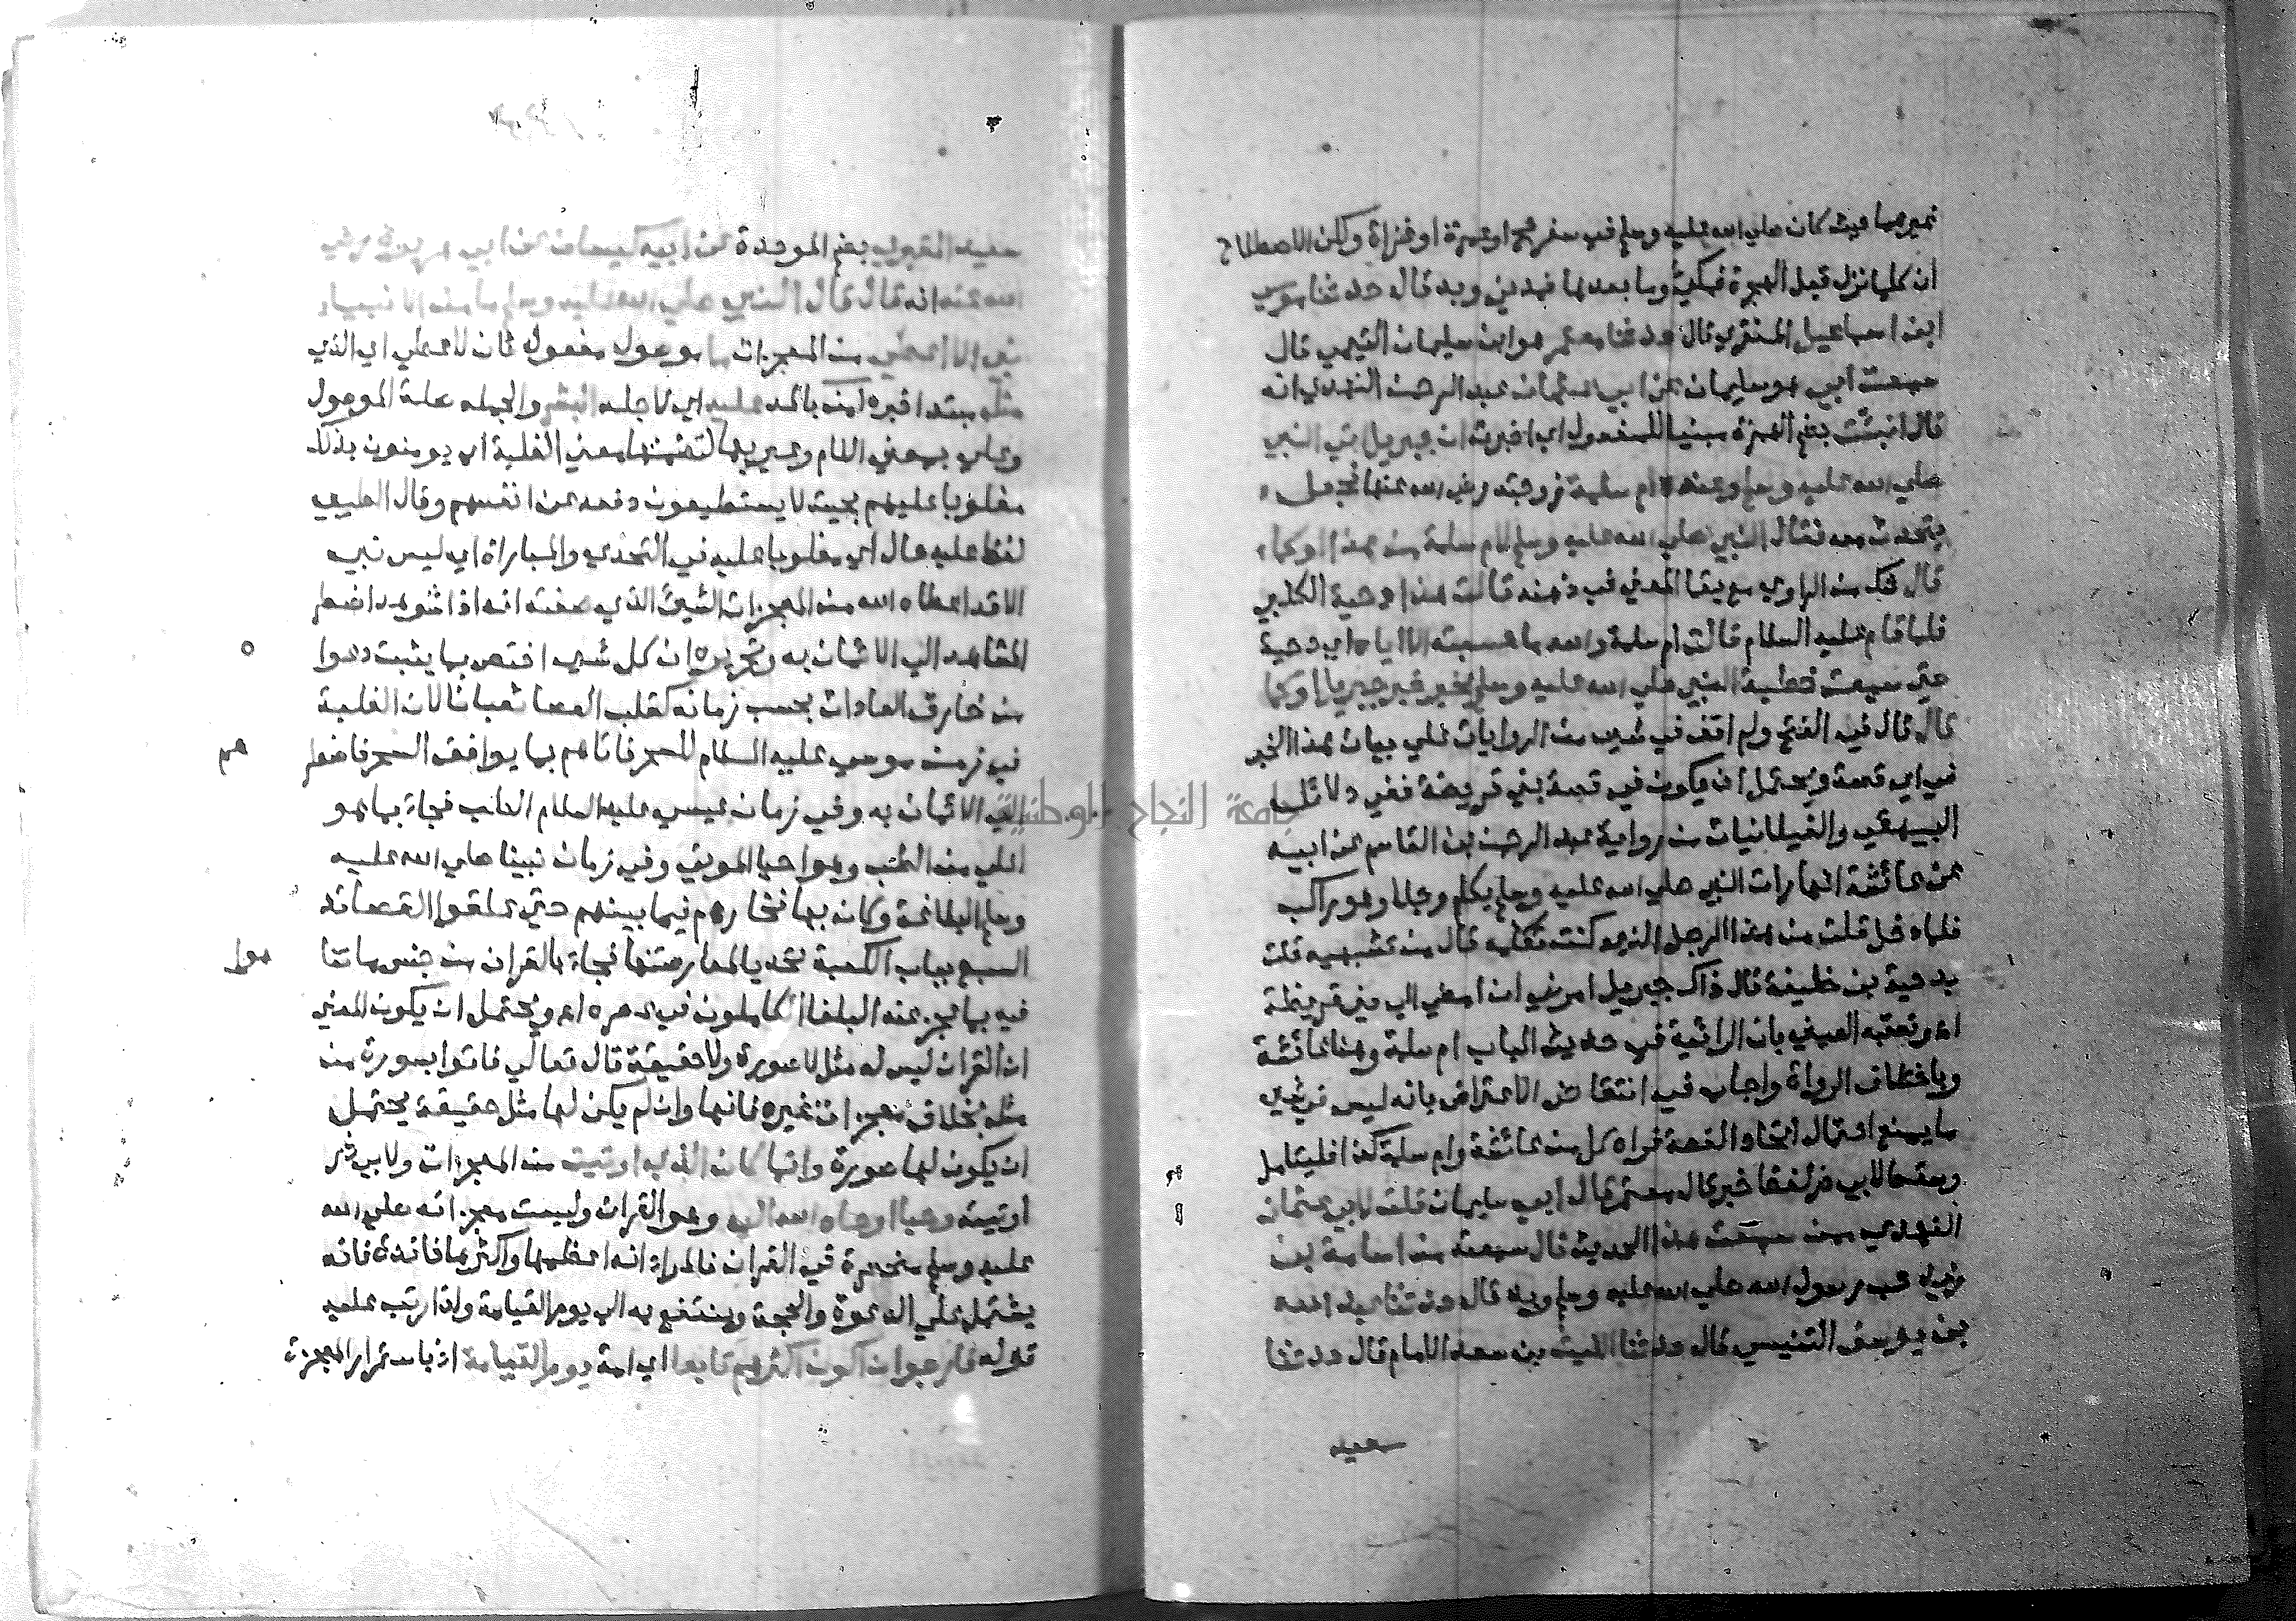 غيرهما حيث كان صلي الله عليه وسلم في سفر حج او عمرة او غزاة ولكن الاصطلاح
ان كلما نزل قبل الهجرة فمكي وما بعدها فمدني وبه قال حدثنا موسي
ابن اسماعيل المنقري قال حدثنا معتمر هو ابن سليمان التيمي قال
سمعت ابي هو سليمان عن ابي عثمان عبد الرحمن النهدي انه
قال انبئت بضم الهمزة مبنيا للمفعول اي اخبرت ان جبريل اتي النبي
صلي الله عليه وسلم وعنده ام سلمة زوجته رضي الله عنها فجعل
يتحدث معه فقال النبي صلي الله عليه وسلم لام سلمة من هذا او كما
قال شك من الراوي مع بقا المعني في ذهنه قالت هذا دحية الكلبي
فلما قام عليه السلام قالت ام سلمة والله ما حسبته الا اياه اي دحية
حتي سمعت خطبة النبي صلي الله عليه وسلم يخبر خبر جبريل او كما
قال قال في الفتح ولم اقف في شي من الروايات علي بيان هذا الخبر
في اي قصة ويحتمل ان يكون في قصة بني قريضة ففي دلائل
البيهقي والغيلانيات من رواية عبد الرحمن بن القاسم عن ابيه
عن عائشة انها رات النبي صلي الله عليه وسلم يكلم رجلا وهو راكب
فلما دخل قلت من هذا الرجل الذي كنت تكلمه قال من تشبهيه قلت
بدحية بن خليفة قال ذاك جبريل امرني ان امضي الي بني قريظة
اه وتعقبه العيني بان الرائية في حديث الباب ام سلمة وهنا عائشة
وباختلاف الرواة واجاب في انتقاض الاعتراض بانه ليس في شي
ما يمنع احتمال اتحاد القصة فراه كل من عائشة وام سلمة كذا فليتامل
قال معتمر قال ابي سليمان قلت لابي عثمان
النهدي ممن سمعت هذا الحديث قال سمعته من اسامة بن
زيد حب رسول الله صلي الله عليه وسلم وبه قال حدثنا عبد الله
بن يوسف التنيسي قال حدثنا الليث بن سعد الامام قال حدثنا
سعيد
سعيد المقبري بضم الموحدة عن ابيه كيسان عن ابي هريرة رضي
الله عنه انه قال قال النبي صلي الله عليه وسلم ما من الانبياء
نبي الا اعطي من المعجزات ما موصول مفعول ثان لاعطي اي الذي
مثله مبتدا خبره آمن بالمد عليه اي لاجله البشر والجمله صلة الموصول
وعلي بمعني اللام وعبر بها لتضمنها معني الغلبة اي يومنون بذلك
مغلوبا عليهم بحيث لا يستطيعون دفعه عن انفسهم وقال الطيبي
لفظ عليه حال اي مغلوبا عليه في التحدي والمباراة اي ليس نبي
الا قد اعطاه الله من المعجزات الشيئ الذي صفته انه اذا شوهد اضطر
المشاهد الي الايمان به وتحريره ان كل نبي اختص بما يثبت دعوا
ه
من خارق العادات بحسب زمانه كقلب العصا ثعبانا لان الغلبة
في زمن موسي عليه السلام للسحر فاتاهم بما يوافق السحر فاضطر
هم
الي الايمان به وفي زمان عيسي عليه السلام الطب فجاء بما هو
اعلي من الطب وهو احيا الموتي وفي زمان نبينا صلي الله عليه
وسلم البلاغة وكان بها فخارهم فيما بينهم حتي علقوا القصائد
السبع بباب الكعبة تحديا لمعارضتها فجاء بالقران من جنس ما تنا
هوا
فيه بما عجز عنه البلغا الكاملون في عصره اه ويحتمل ان يكون المعني
ان القران ليس له مثل لا صورة ولا حقيقة قال تعالي فاتوا بسورة من
مثله بخلاف معجزات غيره فانها وان لم يكن لها مثل حقيقة يحتمل
ان يكون لها صورة وانما كان الذي اوتيت من المعجزات ولابي ذر
اوتيته وحيا اوحاه الله الي وهو القران وليست معجزاته صلي الله
عليه وسلم منحصرة في القران فالمراد انه اعظمها واكثرها فائدة فانه
يشتمل علي الدعوة والحجة وينتفع به الي يوم القيامة ولذا رتب عليه
قوله فارجوا ان اكون اكثرهم تابعا اي امة يوم القيامة اذ باستمرار المعجزة